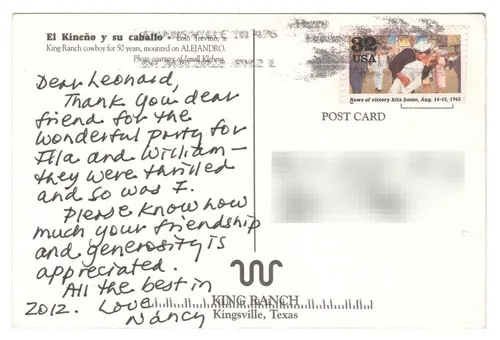 El Kineño y su caballo • Lolo Treviño, a
King Ranch cowboy for 50 years, mounted on ALEJANDRO.
Photo courtesy of Janell Kleberg
Dear Leonard,
Thank you dear
friend for the
wonderful party for
Illa and William —
they were thrilled
and so was I.
Please know how
much your friendship
and generosity is
appreciated.
All the best in
2012. Love
Nancy
32
USA
News of victory hits home, Aug. 14-15, 1945
POST CARD
KING RANCH
Kingsville, Texas